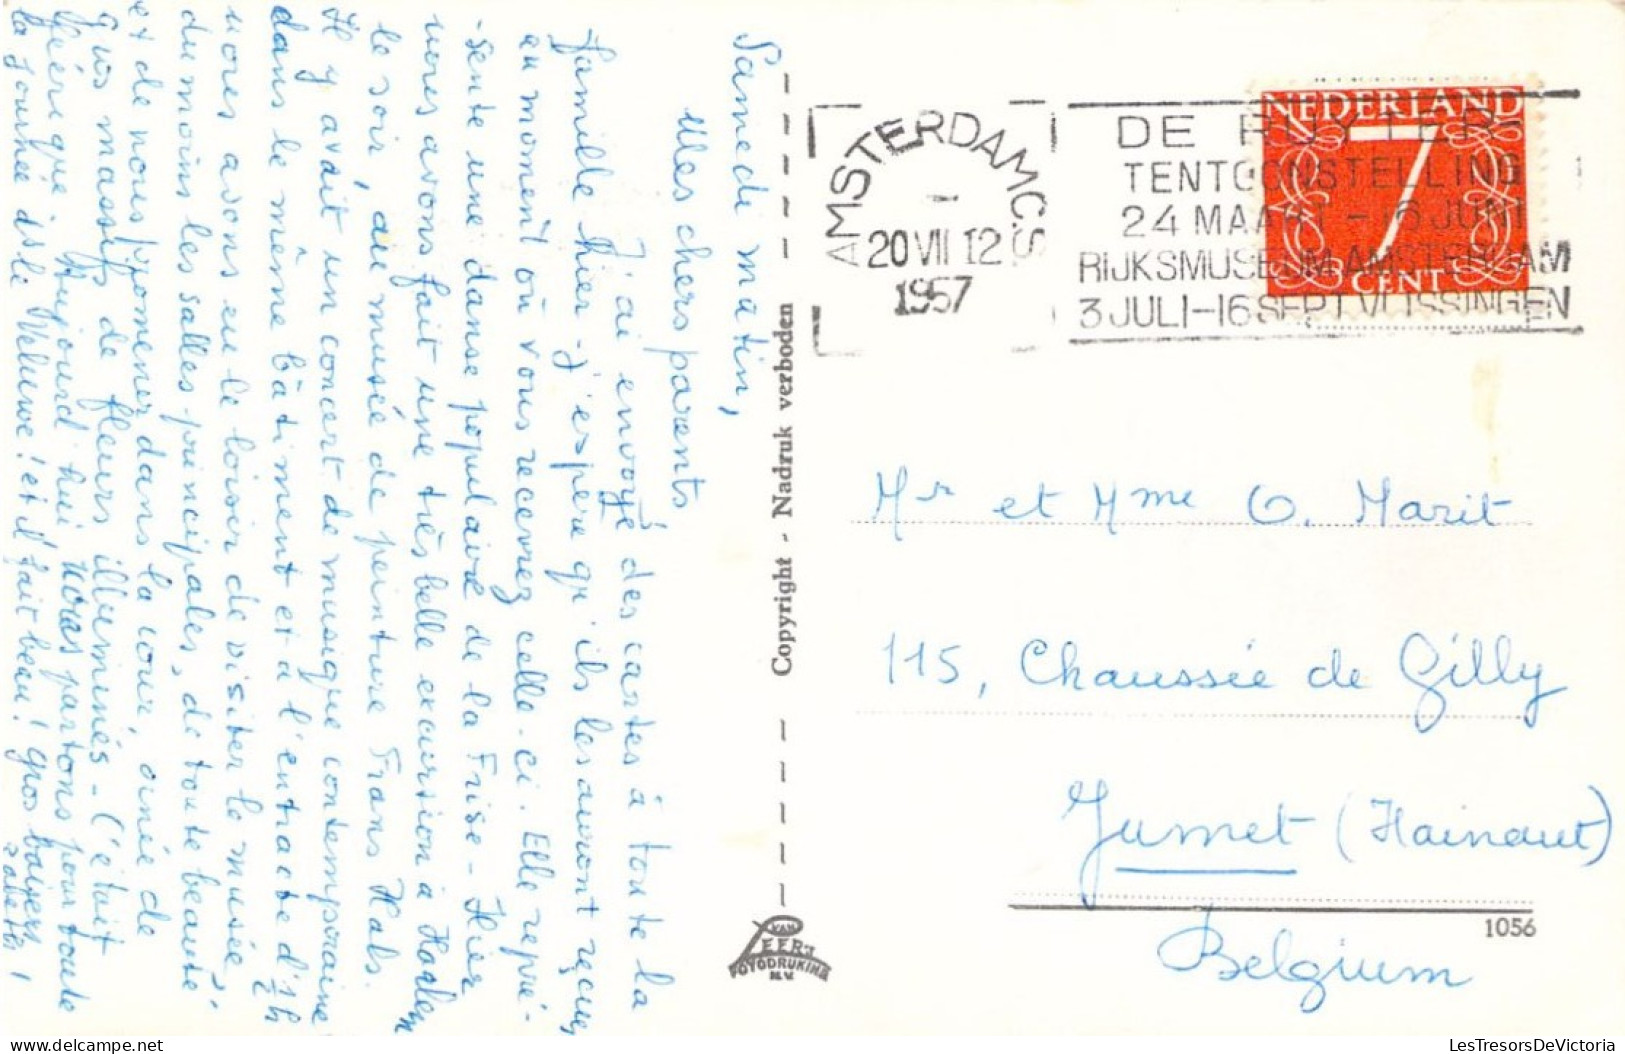 Samedi matin,
Mes chers parents,
J'ai envoyé des cartes à toute la
famille hier - j'espère qu'ils les auront reçues
au moment où vous recevrez celle-ci. Elle repré-
-sente une danse populaire de la Frise - Hier
nous avons fait une très belle excursion à Haarlem
le soir, au musée de peinture Frans Hals.
Il y avait un concert de musique contemporaine
dans le même bâtiment et à l'entracte d'½ h
nous avons eu le loisir de visiter le musée,
du moins les salles principales, de toute beauté
et de nous promener dans la cour, ornée de
gros massifs de fleurs illuminés - C'était
féérique. Aujourd'hui nous partons pour toute
la journée ds le Veluwe! et il fait beau! gros baisers
Copyright - Nadruk verboden
VAN
LEER'S
FOTODRUKIND
N.V.
AMSTERDAM C.S.
20 VII 12
1957
DE RUYTER-
TENTOONSTELLING
24 MAART - 16 JUNI
RIJKSMUSEUM AMSTERDAM
3 JULI - 16 SEPT VLISSINGEN
NEDERLAND
7
CENT
Mr et Mme O. Marit
115, Chaussée de Gilly
Jumet (Hainaut)
1056
Belgium
LesTresorsDeVictoria